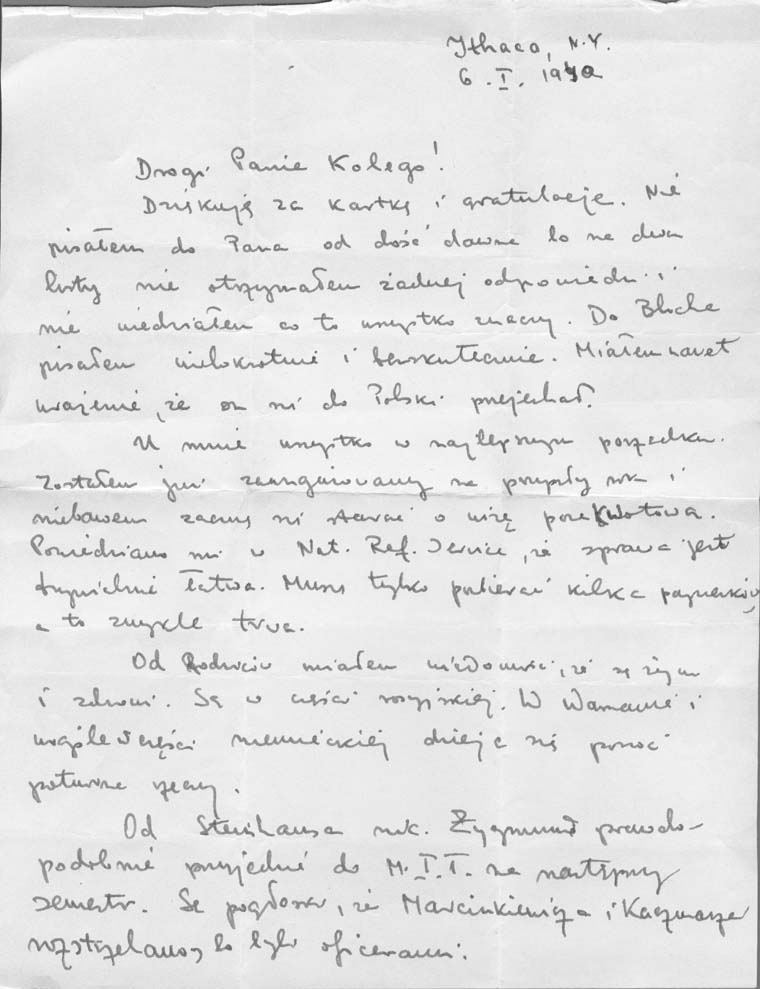 Ithaca, N.Y.
6. I. 1940
Drogi Panie Kolego!
Dziękuję za kartkę i gratulacje. Nie
pisałem do Pana od dość dawna bo na dwa
listy nie otrzymałem żadnej odpowiedzi i
nie wiedziałem co to wszystko znaczy. Do Blocha
pisałem wielokrotnie i bezskutecznie. Miałem nawet
wrażenie, że on się do Polski przejechał.
U mnie wszystko w najlepszym porządku.
Zostałem już zaangażowany na przyszły rok i
niebawem zacznę się starać o wizę pozakwotową.
Powiedziano mi w Nat. Ref. Service, że sprawa jest
trywialnie łatwa. Muszę tylko pozbierać kilka papierków
a to zwykle trwa.
Od Rodziców miałem wiadomości, że są żywi
i zdrowi. Są w części rosyjskiej. W Warszawie i
wogóle w części niemieckiej dzieją się ponoć
potworne rzeczy.
Od Steinhausa nic. Zygmund prawdo-
podobnie przyjedzie do M.I.T. na następny
semestr. Są pogłoski, że Marcinkiewicza i Kaczmarza
rozstrzelano, bo byli oficerami.